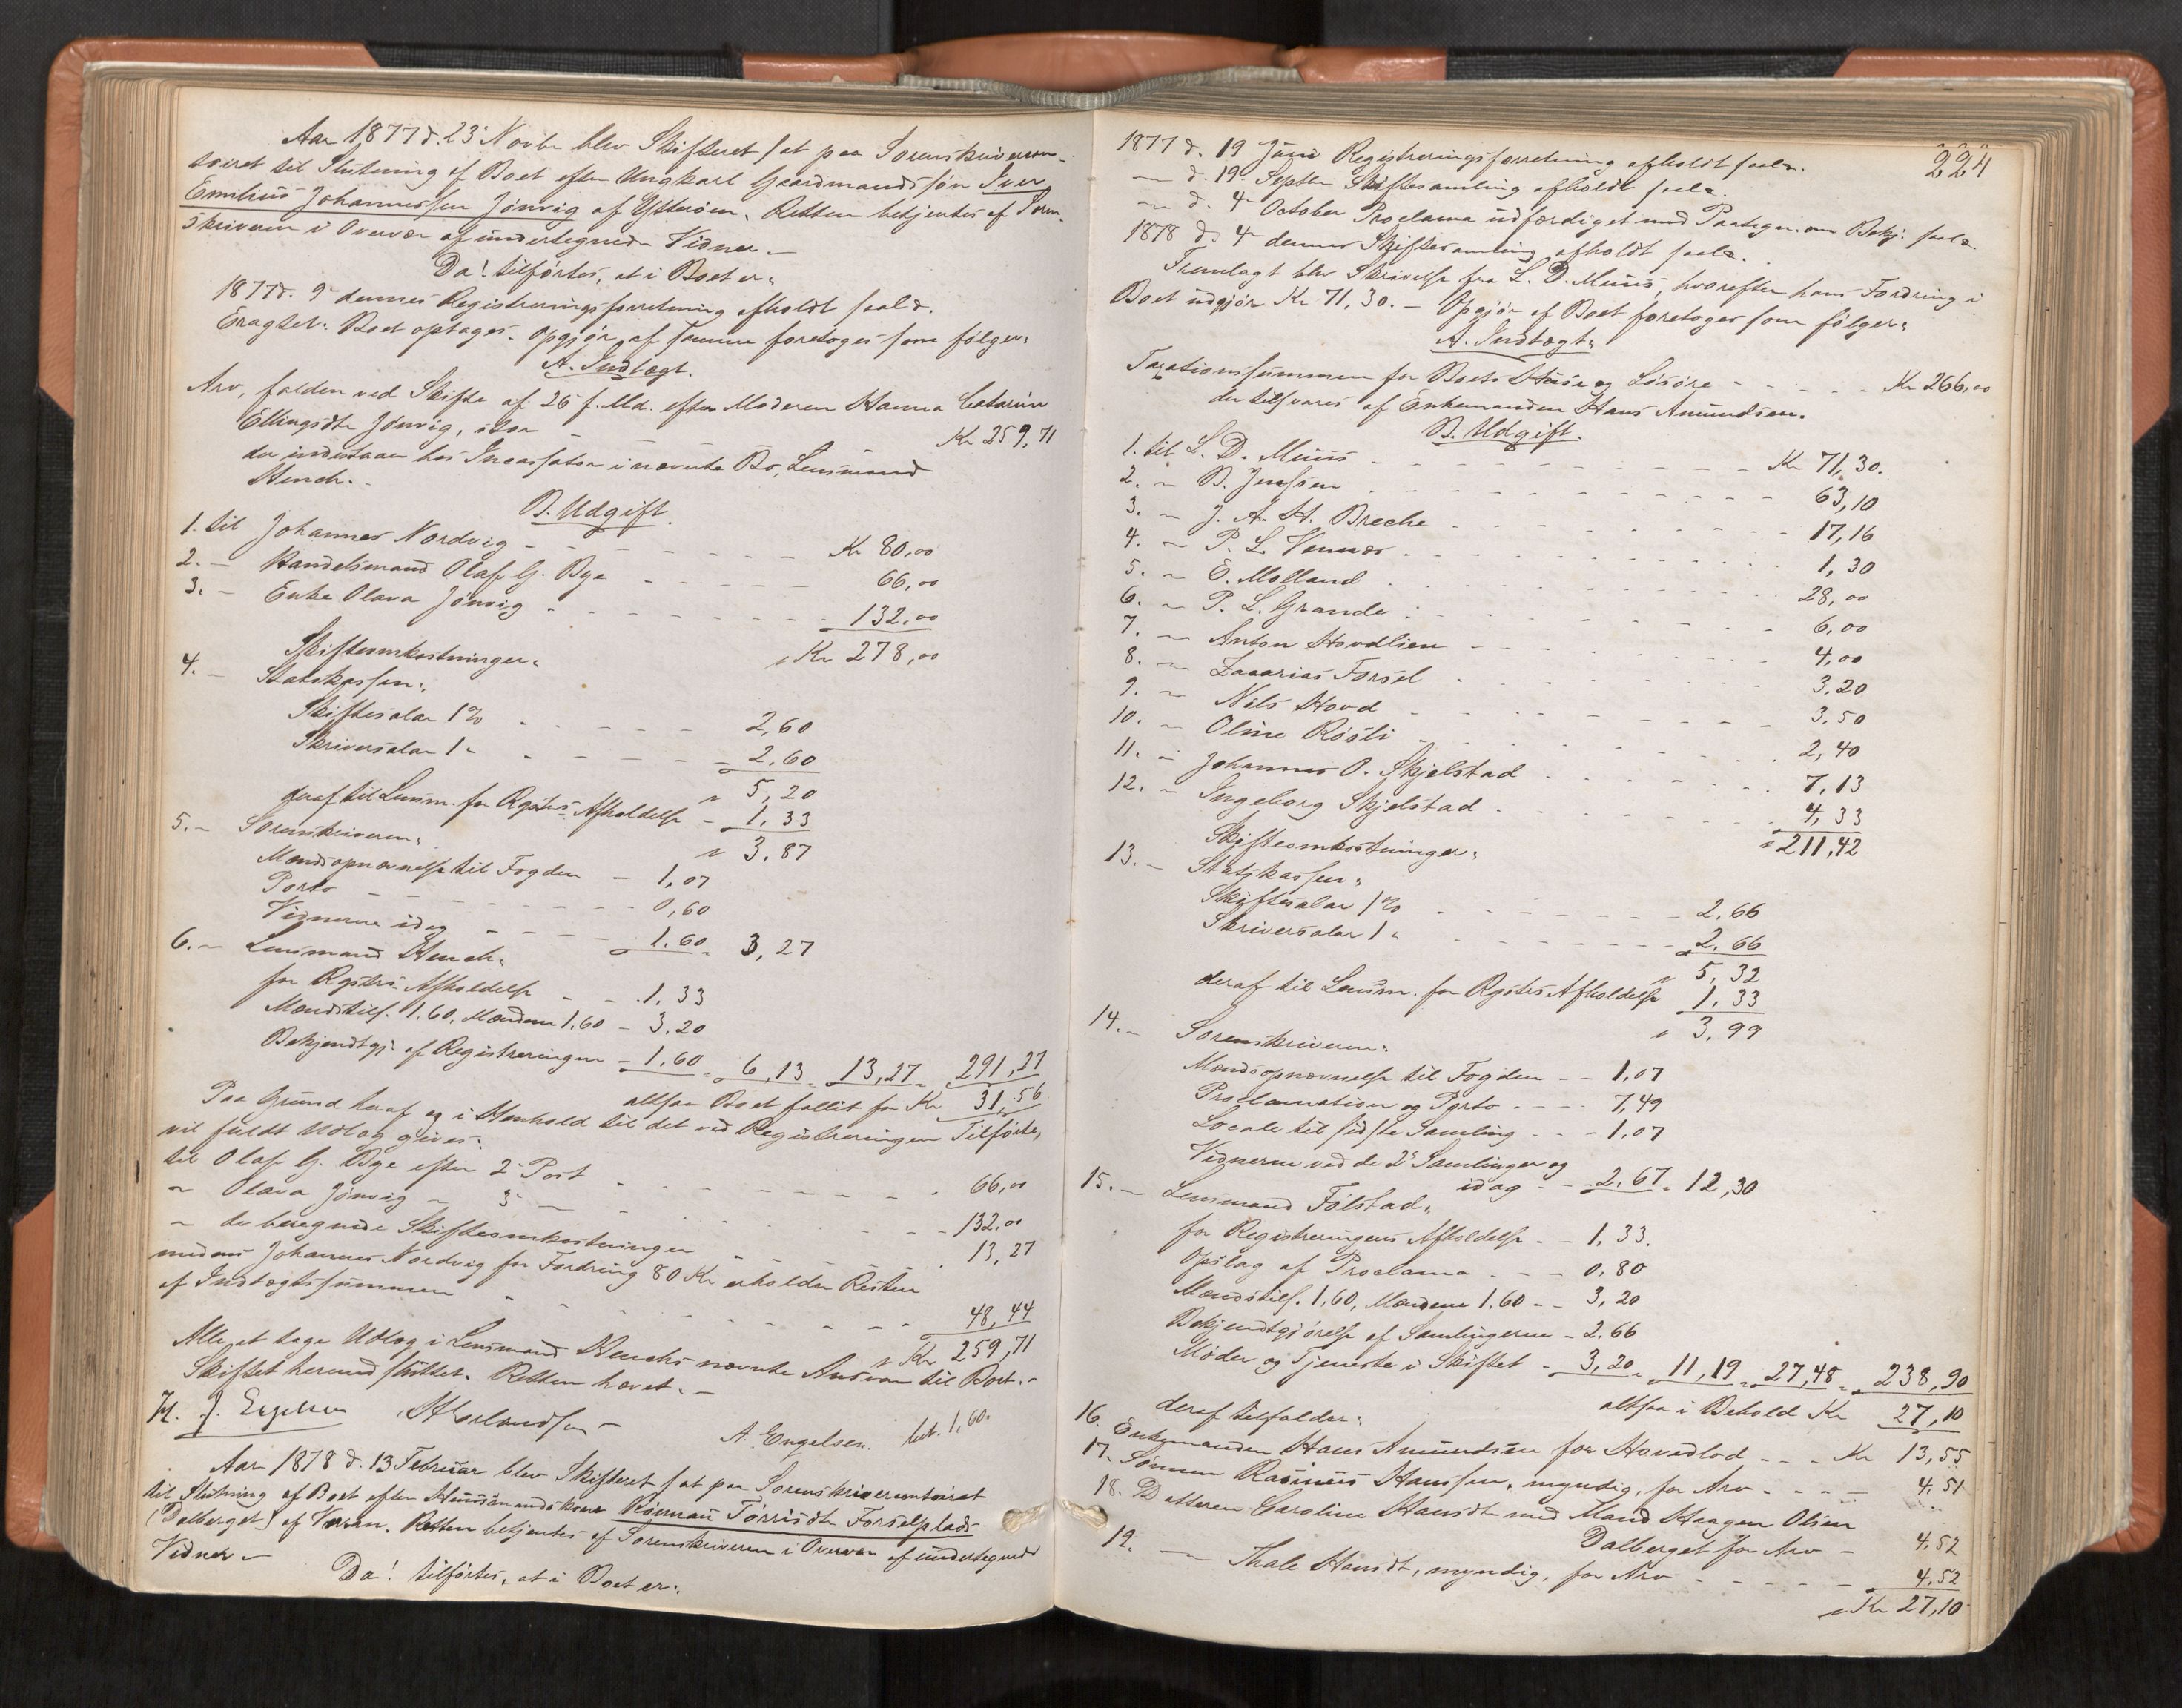 Aar 1877 d. 23de Novbr blev Skifteret sat paa Sorenskrivercon-
toiret til Slutning af Boet efter Ungkarl Gaardmandssøn Iver
Emilius Johannessen Jønvig af Ytterøen. Retten betjentes af Soren-
skriveren i Overvær af undertegnede Vidner. –
Da! tilførtes, at i Boet er:
1877 d. 9de dennes Registreringsforretning afholdt saal.
Eragtet: Boet optages. Opgjør af samme foretoges som følger:
A. Indtægt.
Arv, falden ved Skifte af 26 f. Md. efter Moderen Hanna Catarina
Ellingsdtr Jønvig, stor – – – – Kr 259,71
der indestaaer hos Incassator i nævnte Bo, Lensmand
Hench. –
B. Udgift.
1. til Johannes Nordvig – – – – Kr 80,00
2. – Handelsmand Olaf G. Bye – – – – 66,00
3. – Enke Olava Jønvig – – – – 132,00
Kr 278,00
Skifteomkostninger:
4. – Statskassen:
Skiftesalar 1% – – – – 2,60
Skriversalar 1 " – – – – 2,60
5,20
deraf til Lensm. for Rgstrs Afholdelse – 1,33
3,87
5. – Sorenskriveren:
Mændsopnævnelse til Fogden – 1,07
Porto – – – – 0,60
Vidnerne idag – – – 1,60 3,27
6. – Lensmand Hench:
for Rgstrs Afholdelse – – 1,33
Mændstils. 1,60, Mændene 1,60 – 3,20
Bekjendtgj. af Registreringen – 1,60 6,13 13,27 291,27
altsaa Boet fallit for Kr 31,56
Paa Grund heraf og i Henhold til det ved Registreringen Tilførte,
vil fuldt Udlæg gives:
til Olaf G. Bye efter 2 Post – – – – 66,00
" Olava Jønvig " 3 " – – – – 132,00
" de beregnede Skifteomkostninger – – – 13,27
medens Johannes Nordvig for Fordring 80 Kr erholder Resten
af Indtægtssummen – – – – 48,44
Kr 259,71
Alle at tage Udlæg i Lensmand Henchs nævnte Ansvar til Boet. –
Skiftet hermed sluttet. Retten hævet. –
A. Engelsen. bet. 1,60.
Aar 1878 d. 13 Februar blev Skifteret sat paa Sorenskrivercontoiret
til Slutning af Boet efter Huusmandskone Tørrisdtr Forselplads
(Dalberget) af Værran. Retten betjentes af Sorenskriveren i Overvær af undertegnede
Vidner –
Da! tilførtes, at i Boet er:
224
1877 d. 19 Juni Registreringsforretning afholdt saal.
– d. 19 Septbr Skiftesamling afholdt saal.
– d. 4de October Proclama udfærdiget med Paategn. om Bekj. saal.
1878 d. 4de dennes Skiftesamling afholdt saal.
Fremlagt blev Skrivelse fra L. D. Muus, hvorefter hans Fordring i
Boet udgjør Kr 71,30. – Opgjør af Boet foretoges som følger:
A. Indtægt:
Taxationssummen for Boets Huse og Løsøre – – – – Kr 266,00
der tilsvares af Enkemanden Hans Amundsen.
B. Udgift.
1. til L. D. Muus – – – – Kr 71,30.
2. " B. Jenssen – – – – 63,10
3. " J. A. H. Breche – – – – 17,16
4. " P. L. Vennes – – – – 1,30
5. " E. Molland – – – – 28,00
6. " P. L. Grande – – – – 6,00
7. " Anton Hovdlien – – – – 4,00
8. " Zacarias Forsel – – – – 3,20
9. " Nils Hovd – – – – 3,50
10. " Oline Røsli – – – – 2,40
11. " Johannes O. Skjelstad – – – – 7,13
12. " Ingeborg Skjelstad – – – – 4,33
211,42
Skifteomkostninger:
13. – Statskassen:
Skiftesalar 1% – – – – 2,66
Skriversalar 1 " – – – – 2,66
5,32
deraf til Lensm. for Rgstrs Afholdelse 1,33
3,99
14. – Sorenskriveren:
Mændsopnævnelse til Fogden – – 1,07
Proclamation og Porto – – – 7,49
Locale til sidste Samling – – – 1,07
Vidnerne ved de 2de Samlinger og
idag – – 2,67 12,30
15. – Lensmand Følstad:
for Registreringens Afholdelse – – 1,33.
Opslag af Proclama – – – 0,80
Mændstils. 1,60, Mændene 1,60 – – 3,20
Bekjendtgjørelse af Samlingerne – 2,66
Møder og Tjeneste i Skiftet – 3,20 11,19 27,48 238,90
altsaa i Behold Kr 27,10
deraf tilfalder:
16. Enkemanden Hans Amundsen for Hovedlod – – – Kr 13,55
17. Sønnen Rasmus Hanssen, myndig, for Arv – – – – 4,51
18. Datteren Caroline Hansdtr med Mand Haagen Olsen
Dalberget for Arv – 4,52
19. – Thale Hansdtr, myndig, for Arv – – – – 4,52
Kr 27,10